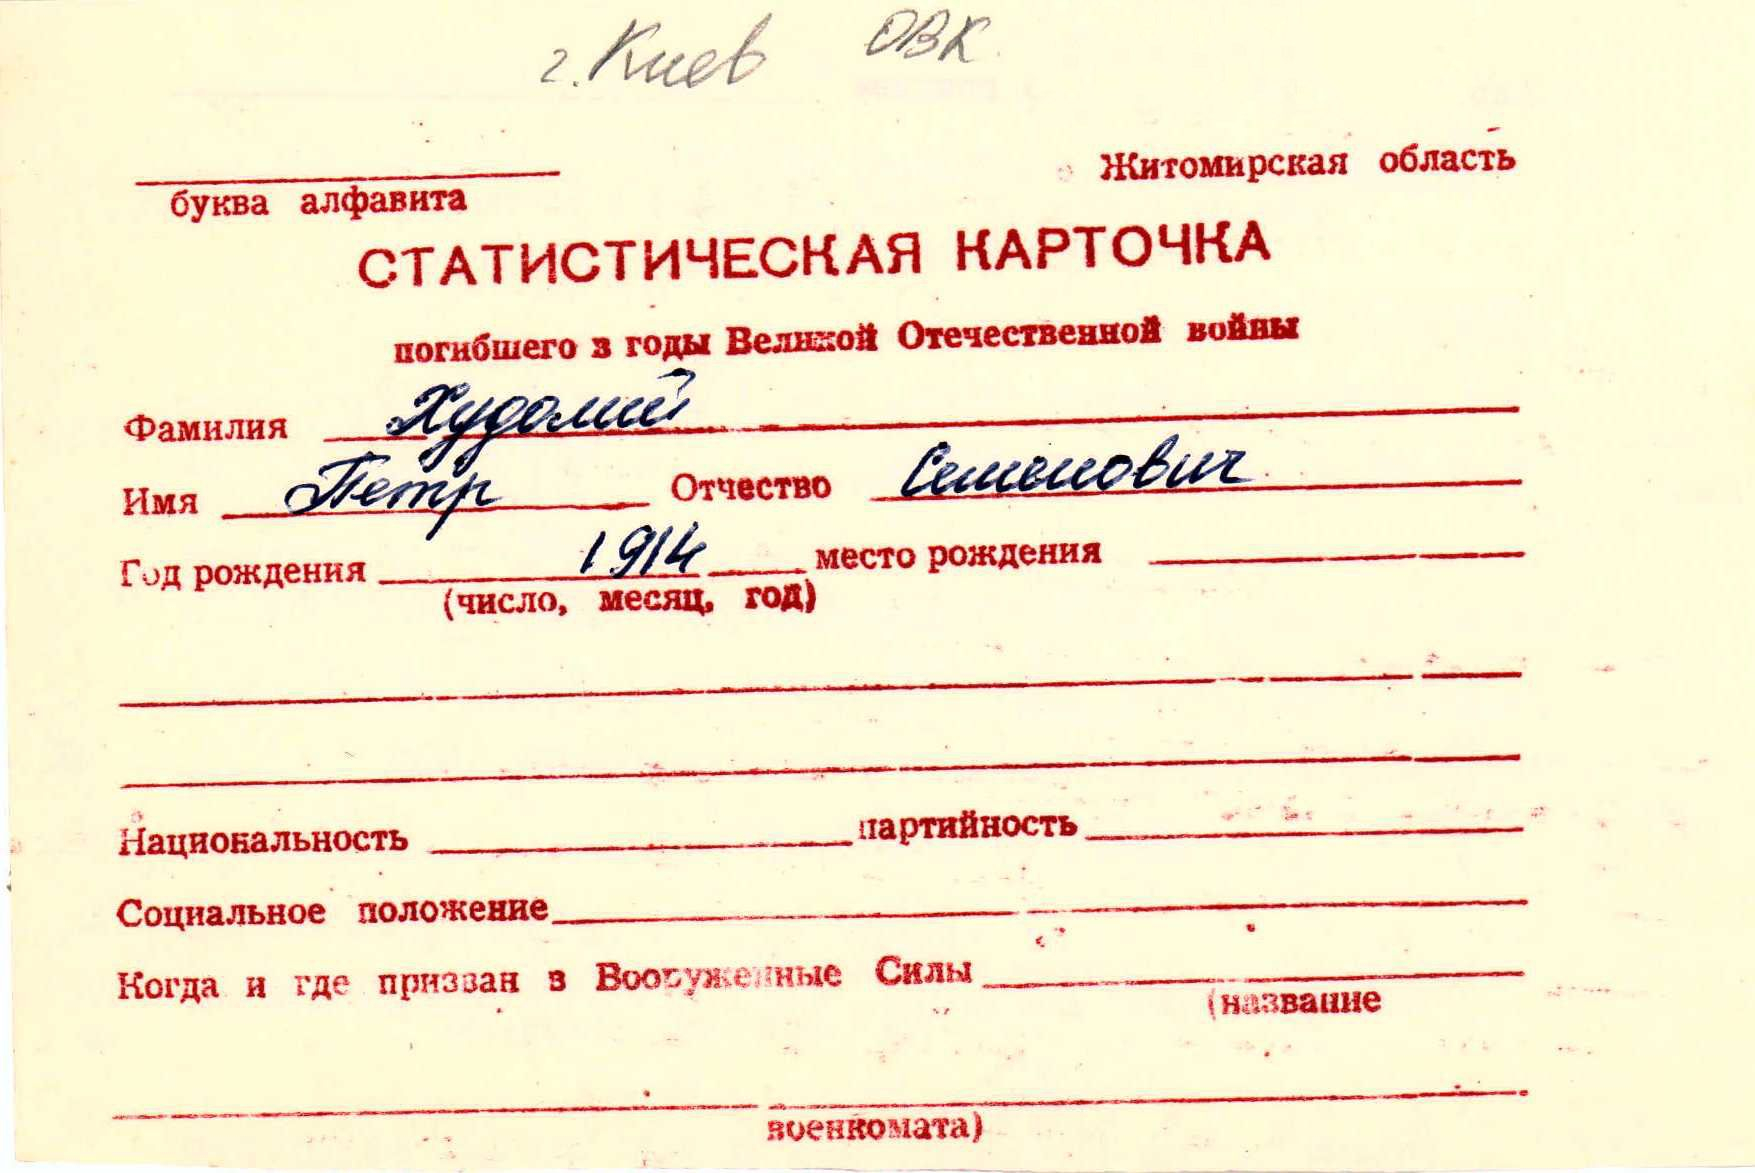 г. Киев ОВК
Житомирская область
буква алфавита
СТАТИСТИЧЕСКАЯ КАРТОЧКА
погибшего в годы Великой Отечественной войны
Фамилия Худолий
Имя Петр Отчество Семенович
Год рождения 1914 место рождения
(число, месяц, год)
Национальность партийность
Социальное положение
Когда и где призван в Вооруженные Силы
(название
военкомата)